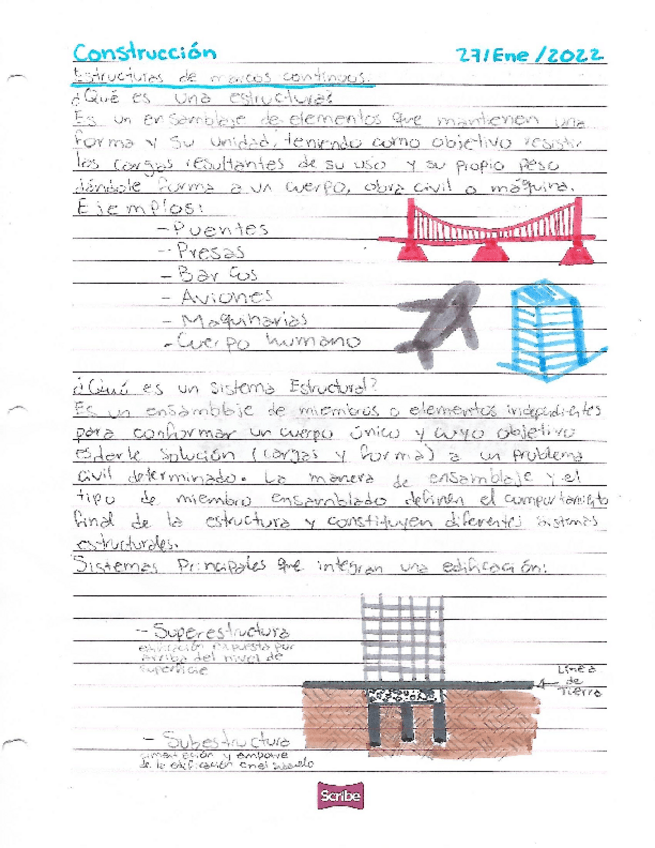 Construcción 27/Ene/2022
Estructuras de marcos continuos.
¿Qué es una estructura?
Es un ensamblaje de elementos que mantienen una
forma y su unidad, teniendo como objetivo resistir
las cargas resultantes de su uso y su propio peso
dándole forma a un cuerpo, obra civil o máquina.
Ejemplos:
- Puentes
- Presas
- Barcos
- Aviones
- Maquinarias
- Cuerpo humano
¿Qué es un sistema Estructural?
Es un ensamblaje de miembros o elementos independientes
para conformar un cuerpo único y cuyo objetivo
es darle solución (cargas y forma) a un problema
civil determinado. La manera de ensamblaje y el
tipo de miembro ensamblado definen el comportamiento
final de la estructura y constituyen diferentes sistemas
estructurales.
Sistemas Principales que integran una edificación:
- Superestructura
edificación expuesta por
arriba del nivel de
superficie
Linea
de
Tierra
- Subestructura
cimentación y empotre
de la edificación en el
Scribe